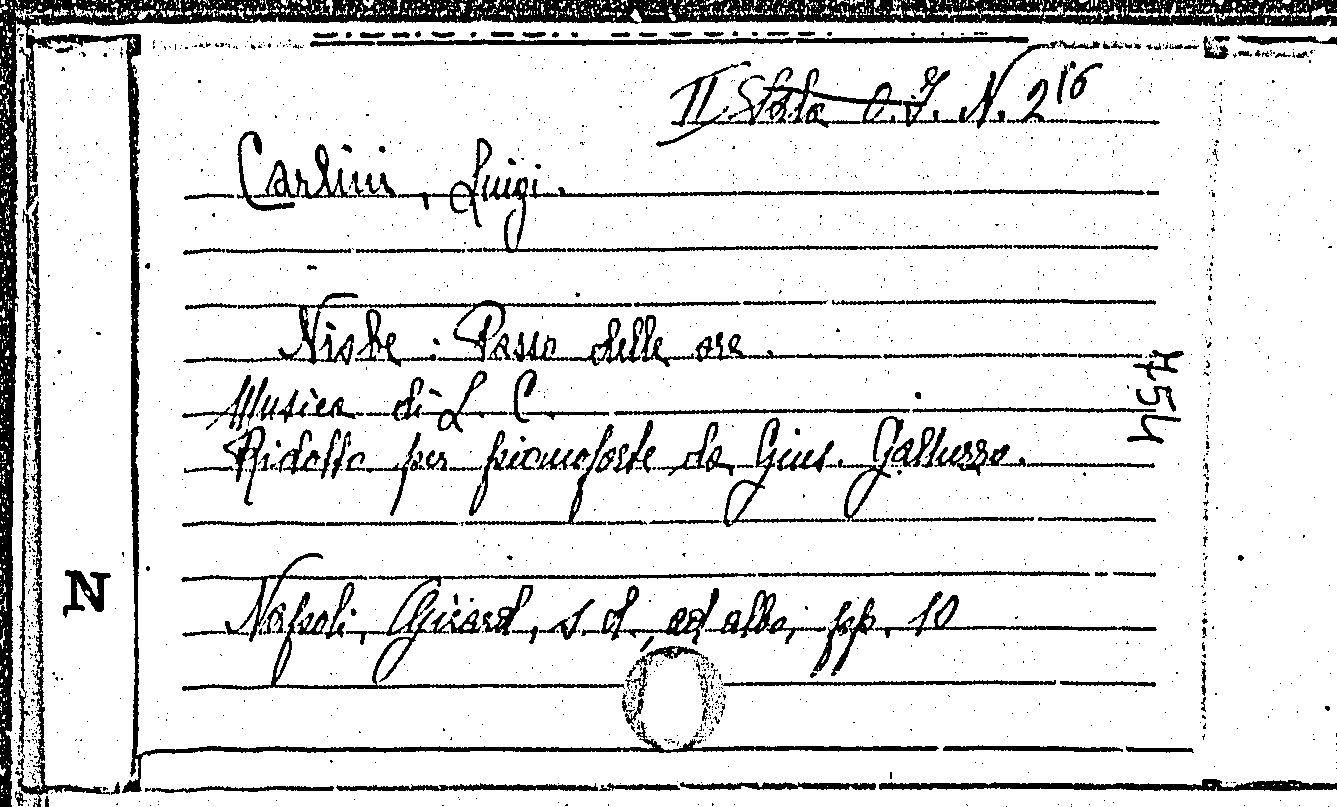 II Sala O. I. N. 2 16
Carlini, Luigi.
Niobe: Passo delle ore.
Musica di L. C.
Ridotto per pianoforte da Gius. Galluzzo.
454
N
Napoli, Girard, s. d., ad albo, pp. 10